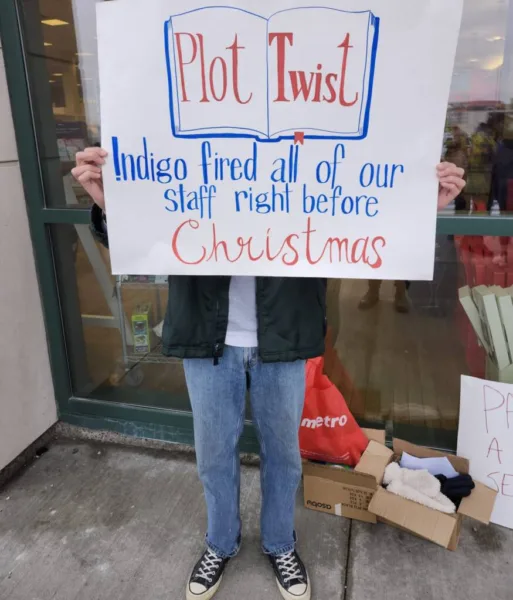 Plot Twist
Indigo fired all of our
staff right before
Christmas
metro
A